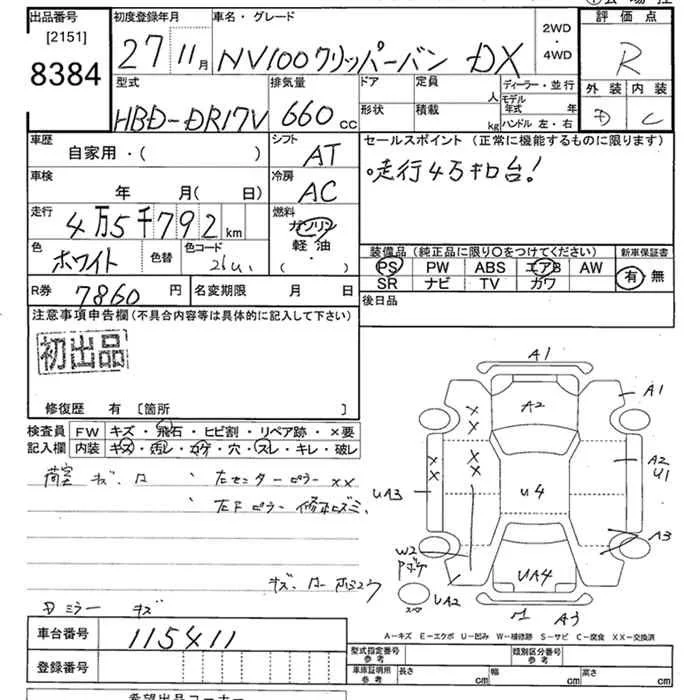 出品番号
[2151]
8384
初度登録年月
27 11月
車名・グレード
NV100クリッパーバン DX
2WD
・
4WD
評価点
R
外装 内装
D C
型式
HBD-DR17V
排気量
660 cc
ドア
形状
定員
人
積載
kg
ディーラー・並行
モデル年式 年
ハンドル 左・右
車歴
自家用・( )
シフト
AT
車検
年 月( 日)
冷房
AC
走行
4万5千792 km
燃料
ガソリン
軽油
( ・ )
色
ホワイト
色替
色コード
26U
R券
7860 円
名変期限 月 日
セールスポイント (正常に機能するものに限ります)
・走行4万キロ台!
装備品 (純正品に限り〇をつけてください)
PS PW ABS エアB AW
SR ナビ TV カワ
新車保証書
有 無
後日品
注意事項申告欄(不具合内容等は具体的に記入して下さい)
初出品
修復歴 有 [箇所 ]
検査員記入欄
FW キズ・飛石・ヒビ割・リペア跡・×要
内装 キズ・汚レ・コゲ・穴・スレ・キレ・破レ
荷室 キズ・ロ
左センターピラー ××
左Fピラー 修
キズ・
ミラー キズ
A1
A1
A2
A2
U1
UA3
U4
A3
W2
UA2
UA4
A3
スペア
A-キズ E-エクボ U-凹み W-補修跡 S-サビ C-腐食 XX-交換済
車台番号
115411
登録番号
型式指定番号
参考
類別区分番号
参考
車庫証明用
参考
長さ cm 幅 cm 高さ cm
希望出品コーナー